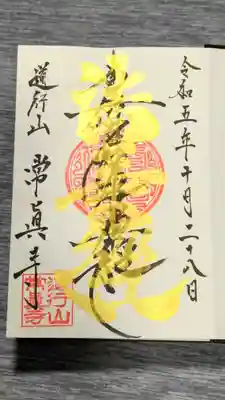 令和五年十月二十八日
南無妙法蓮華経
道行山
常眞寺
道行山
常眞寺